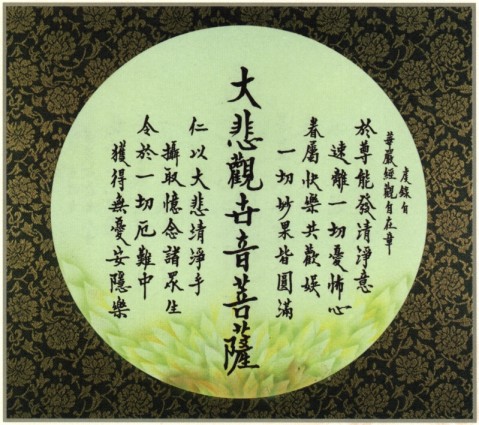 虔錄自
華嚴經觀自在章
於尊能發清淨意
速離一切憂怖心
眷屬快樂共歡娛
一切妙果皆圓滿
大悲觀世音菩薩
仁以大悲清淨手
攝取憶念諸眾生
令於一切厄難中
獲得無憂安隱樂